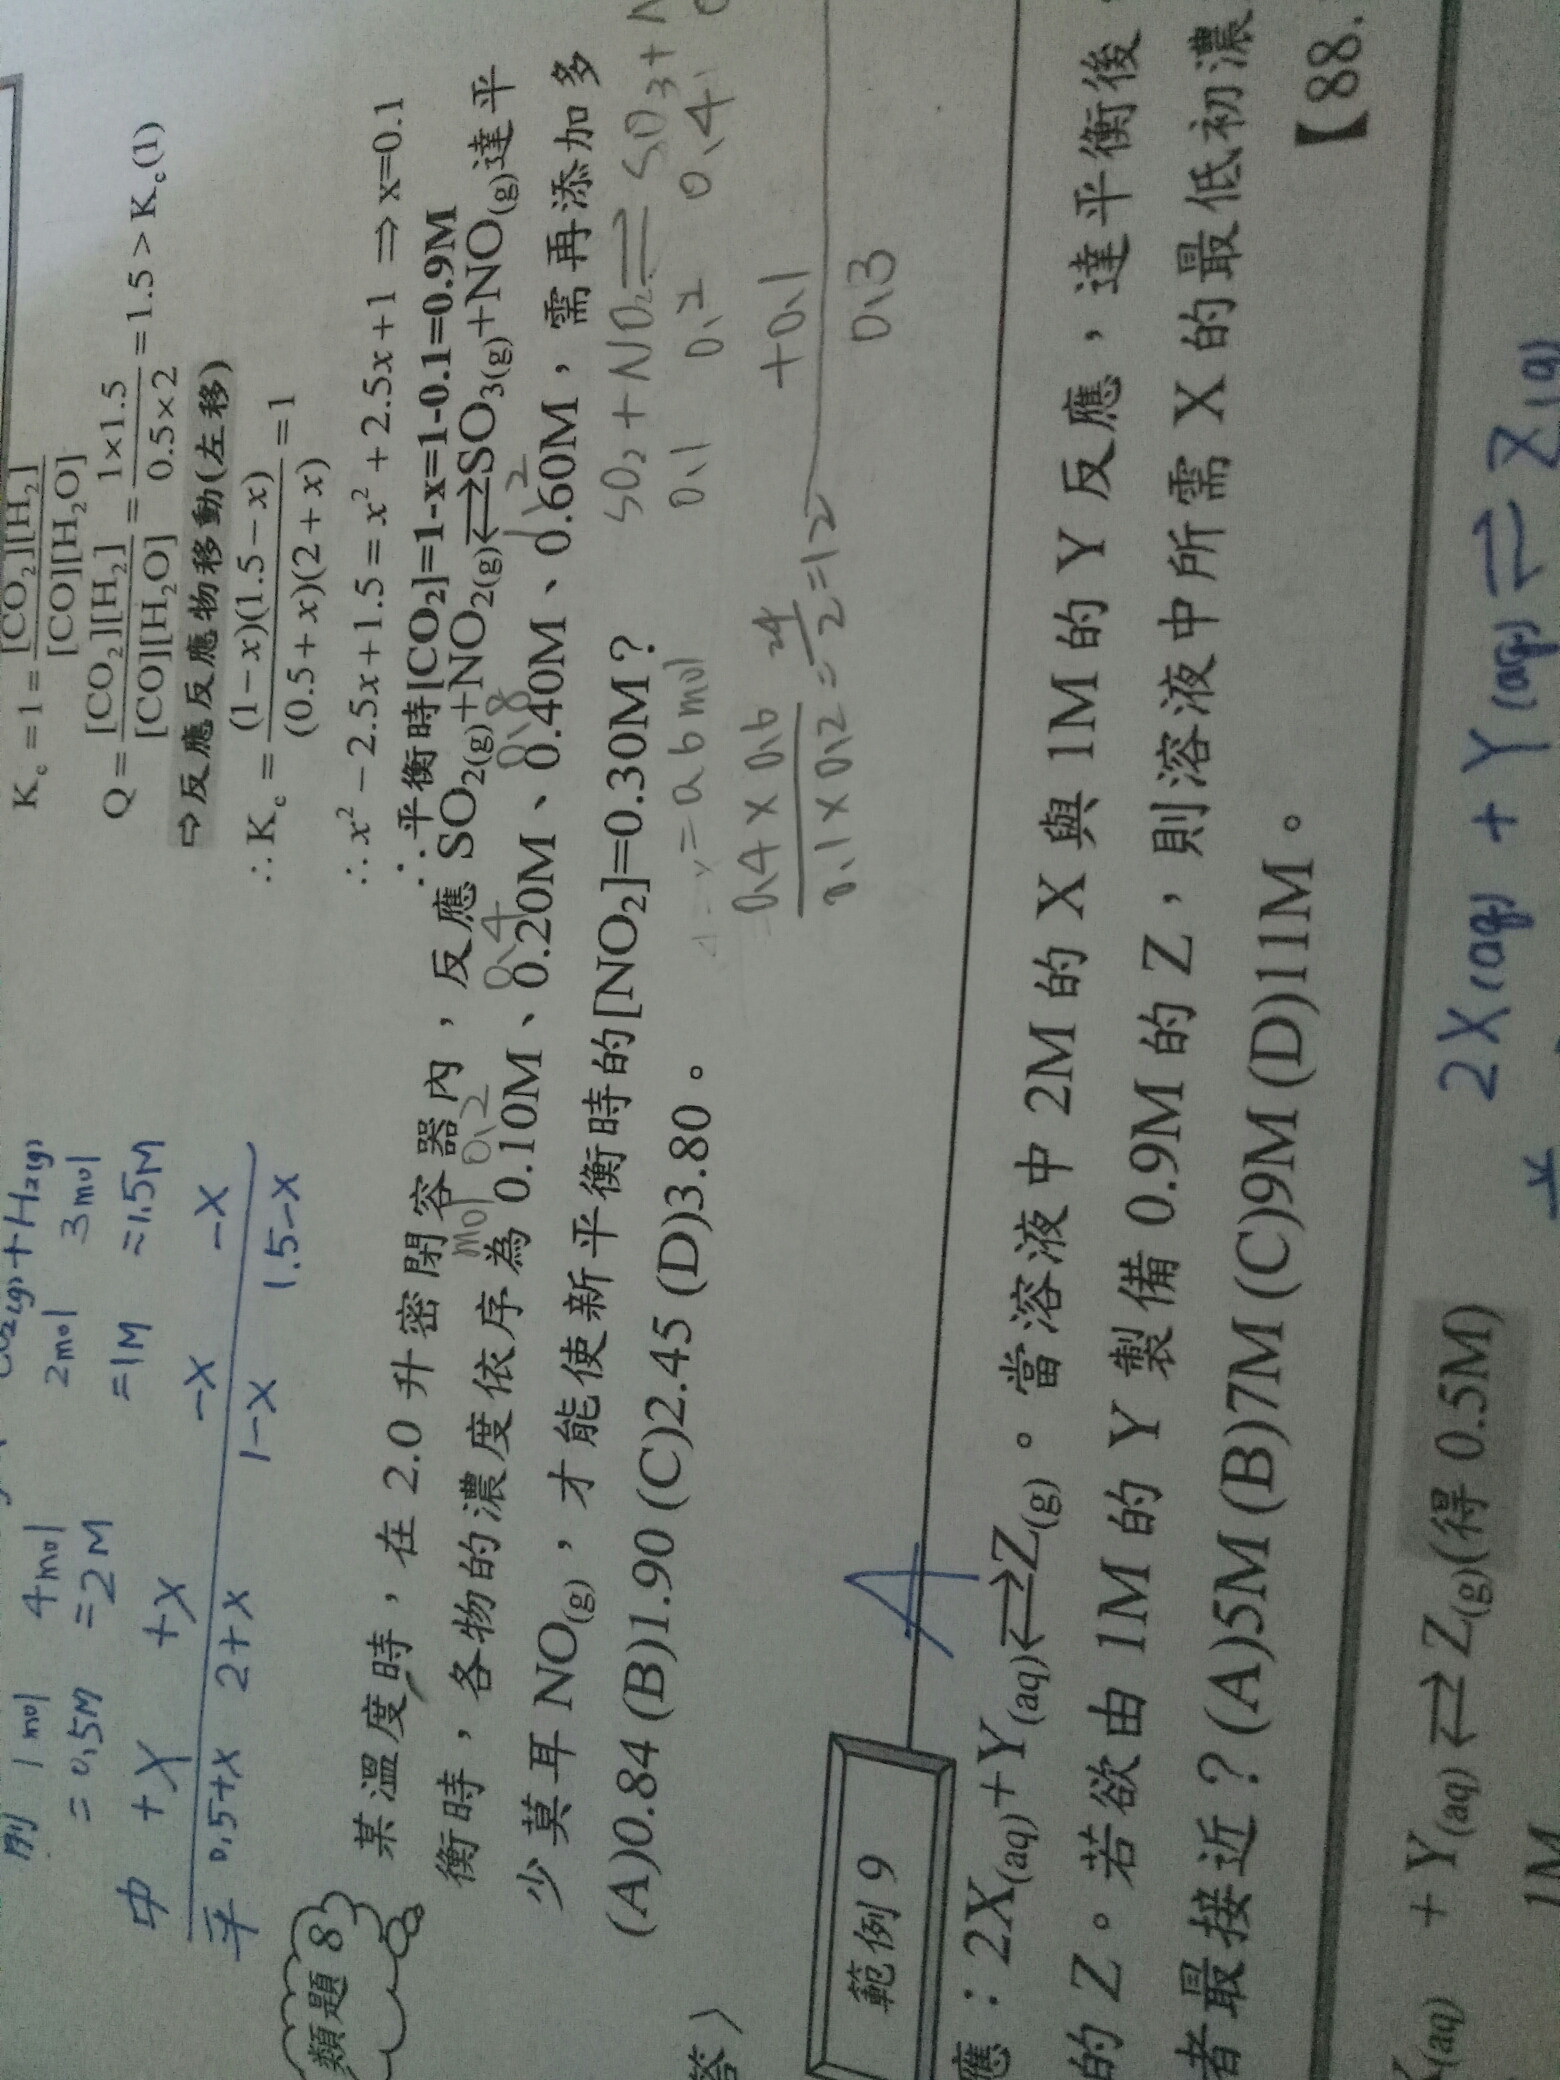 CO₂(g)+H₂(g)
則 1mol 4mol 2mol 3mol
=0.5M =2M =1M =1.5M
中 +x +x -x -x
平 0.5+x 2+x 1-x 1.5-x
K_c=1=[CO₂][H₂]/[CO][H₂O]
Q=[CO₂][H₂]/[CO][H₂O]=1×1.5/0.5×2=1.5>K_c(1)
⇨反應反應物移動(左移)
∴K_c=(1-x)(1.5-x)/(0.5+x)(2+x)=1
∴x²-2.5x+1.5=x²+2.5x+1⇒x=0.1
∴平衡時[CO₂]=1-x=1-0.1=0.9M
類題 8
某溫度時，在 2.0 升密閉容器內，反應 SO₂(g)+NO₂(g)⇄SO₃(g)+NO(g)達平
mol 0.2 0.4 0.8 1.2
衡時，各物的濃度依序為 0.10M、0.20M、0.40M、0.60M，需再添加多
少莫耳 NO(g)，才能使新平衡時的[NO₂]=0.30M？
(A)0.84 (B)1.90 (C)2.45 (D)3.80。
SO₂+NO₂⇌SO₃+
0.1 0.2 0.4
+0.1
0.3
=ab mol
0.4×0.6/0.1×0.2=24/2=12
答〉
範例 9
A
應：2X(aq)+Y(aq)⇄Z(g)。當溶液中 2M 的 X 與 1M 的 Y 反應，達平衡後
的 Z。若欲由 1M 的 Y 製備 0.9M 的 Z，則溶液中所需 X 的最低初濃
者最接近？(A)5M (B)7M (C)9M (D)11M。
【88.
X(aq) + Y(aq) ⇄ Z(g)(得 0.5M)
1M
2X(aq) + Y(aq) ⇌ Z(g)